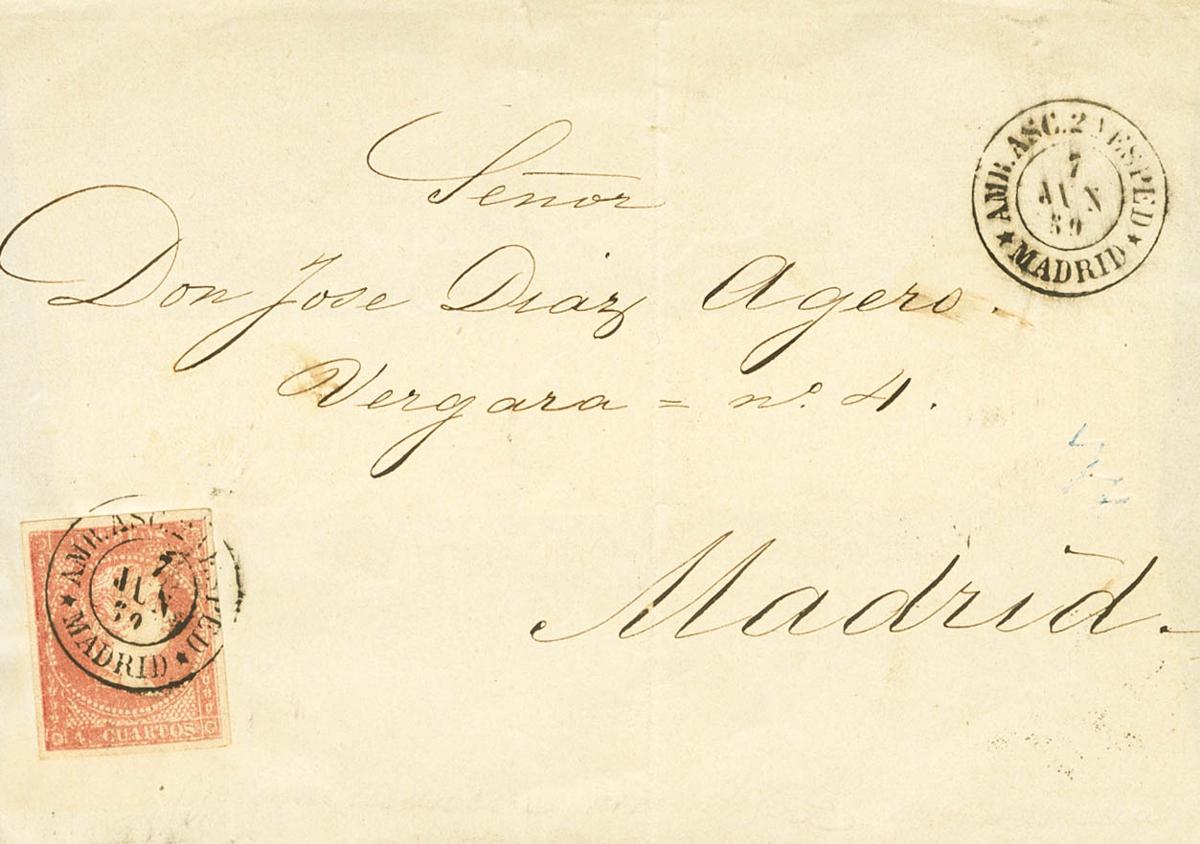 Señor
Don Jose Diaz Agero.
Vergara = nº. 4.
Madrid.
AMB. ASC. 2 VESPED
7
JUN
59
★ MADRID ★
AMB. ASC. 2 VESPED
7
JUN
59
★ MADRID ★
4 CUARTOS